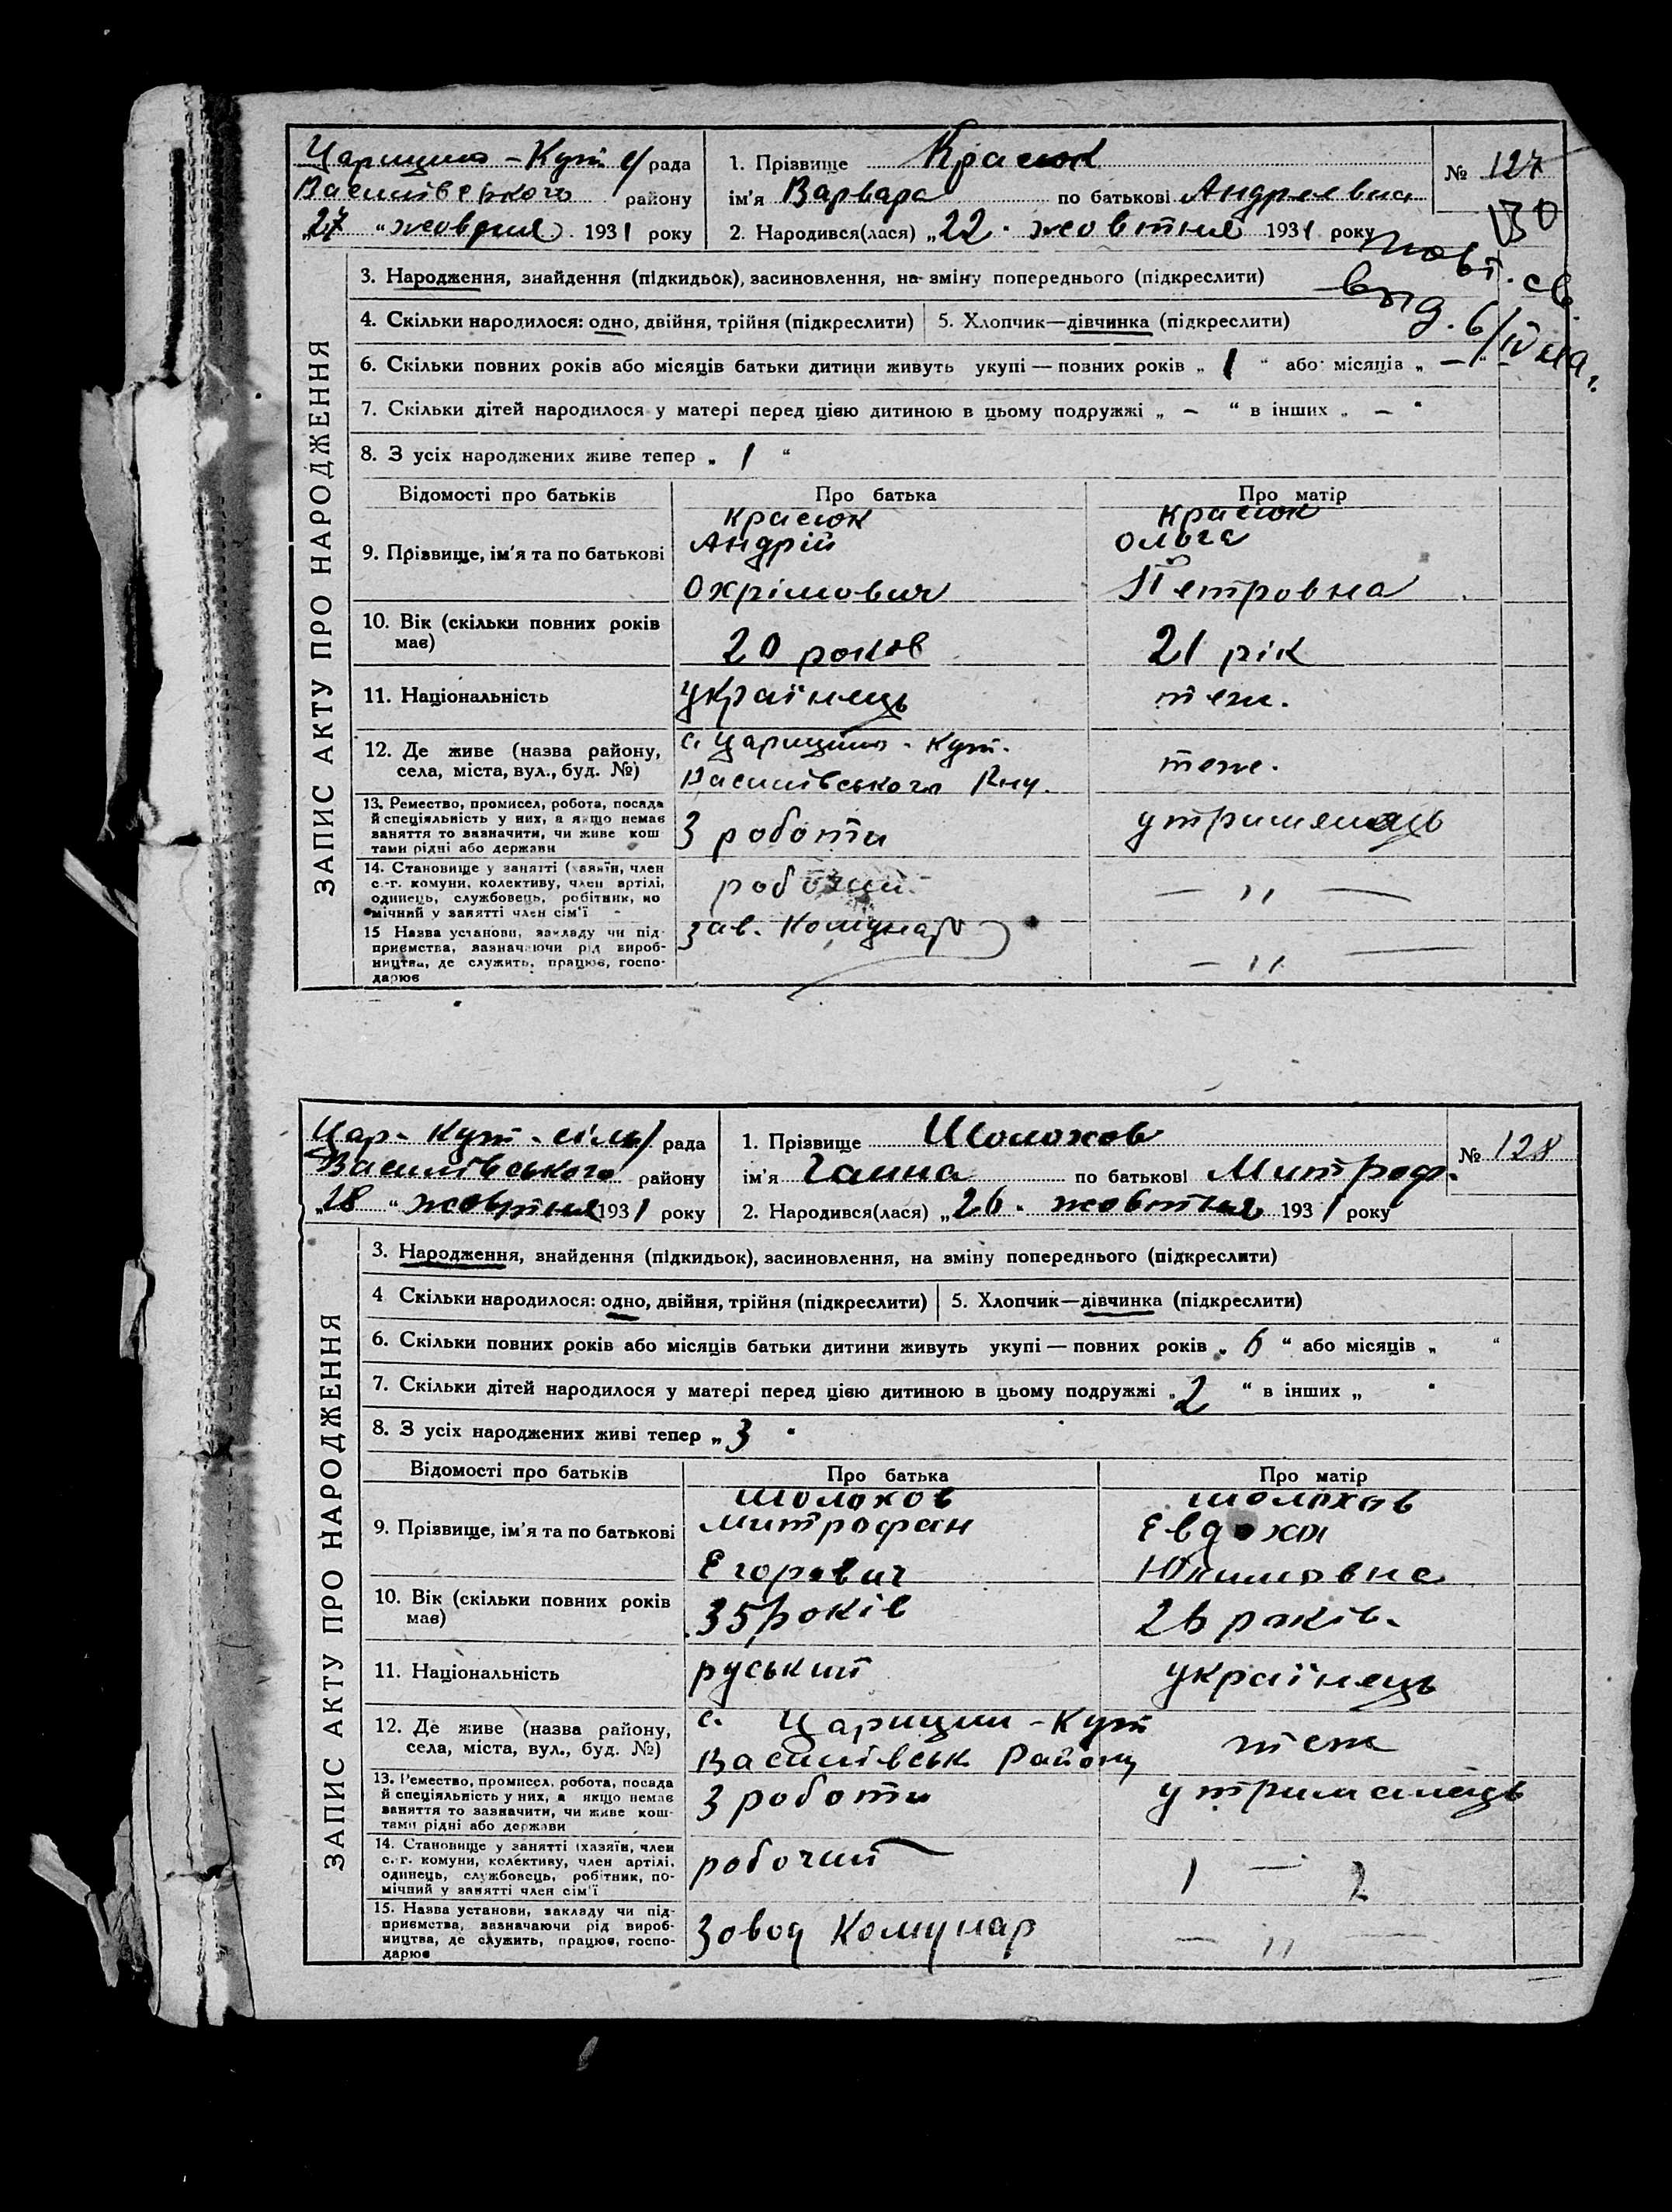 Царицино-Кут с/рада
Василівського району
„27“ жовтня 1931 року
1. Прізвище Красюк
ім'я Варвара по батькові Андреевна
2. Народився(лася) „22“ жовтня 1931 року
№ 127
130
повт. св.
вид. 6/IV
ЗАПИС АКТУ ПРО НАРОДЖЕННЯ
3. Народження, знайдення (підкидьок), засиновлення, на зміну попереднього (підкреслити)
4. Скільки народилося: одно, двійня, трійня (підкреслити) 5. Хлопчик—дівчинка (підкреслити)
6. Скільки повних років або місяців батьки дитини живуть укупі — повних років „ 1 “ або місяців „ — “
7. Скільки дітей народилося у матері перед цією дитиною в цьому подружжі „ — “ в інших „ — “
8. З усіх народжених живе тепер „ 1 “
Відомості про батьків Про батька Про матір
9. Прізвище, ім'я та по батькові
Красюк
Андрій
Охрімович
Красюк
Ольга
Петровна
10. Вік (скільки повних років має)
20 роков
21 рік
11. Національність
українець
теж.
12. Де живе (назва району,
села, міста, вул., буд. №)
с. Царицино-Кут.
Василівського Рну.
теж.
13. Ремество, промисел, робота, посада
й спеціяльність у них, а якщо немає
заняття то зазначити, чи живе кош-
тами рідні або держави
З роботи
утриманець
14. Становище у занятті (хазяїн, член
с.-г. комуни, колективу, член артілі,
одинець, службовець, робітник, по
мічний у занятті член сім'ї
робочий
— ,, —
15 Назва установи, закладу чи під-
приємства, зазначаючи рід вироб-
ництва, де служить, працює, госпо-
дарює
зав. Комунар
— ,, —
Цар-Кут-сільрада
Василівського району
„28“ жовтня 1931 року
1. Прізвище Шолохов
ім'я Ганна по батькові Митроф.
2. Народився(лася) „26“ жовтня 1931 року
№ 128
ЗАПИС АКТУ ПРО НАРОДЖЕННЯ
3. Народження, знайдення (підкидьок), засиновлення, на зміну попереднього (підкреслити)
4 Скільки народилося: одно, двійня, трійня (підкреслити) 5. Хлопчик—дівчинка (підкреслити)
6. Скільки повних років або місяців батьки дитини живуть укупі — повних років „ 6 “ або місяців „ “
7. Скільки дітей народилося у матері перед цією дитиною в цьому подружжі „ 2 “ в інших „ “
8. З усіх народжених живі тепер „ 3 “
Відомості про батьків Про батька Про матір
9. Прізвище, ім'я та по батькові
Шолохов
Митрофан
Егорович
Шолохов
Евдохия
Юхимовна
10. Вік (скільки повних років має)
35 років
26 років.
11. Національність
руський
українець
12. Де живе (назва району,
села, міста, вул., буд. №)
с. Царицин-Кут
Василівськ Району
теж
13. Ремество, промисел, робота, посада
й спеціяльність у них, а якщо немає
заняття то зазначити, чи живе кош-
тами рідні або держави
З роботи
утриманець
14. Становище у занятті (хазяїн, член
с.-г. комуни, колективу, член артілі,
одинець, службовець, робітник, по-
мічний у занятті член сім'ї
робочий
15. Назва установи, закладу чи під-
приємства, зазначаючи рід вироб-
ництва, де служить, працює, госпо-
дарює
Зовод Комунар
— ,, —